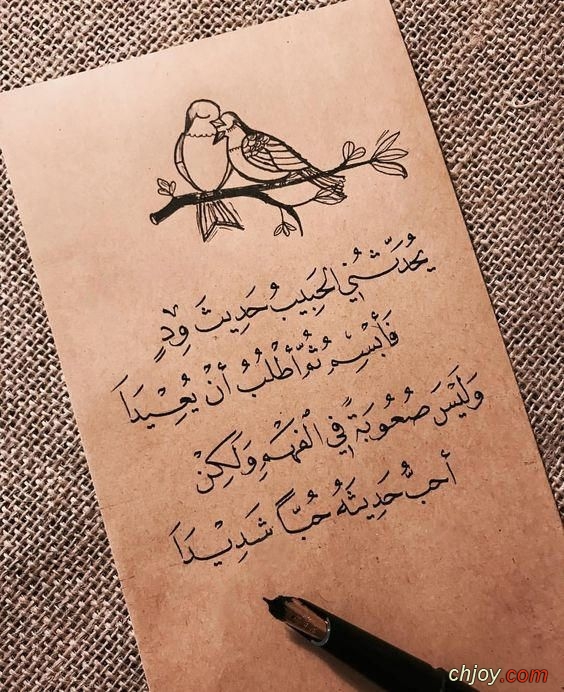 يُحَدِّثُنِي الحَبِيبُ حَدِيثَ وِدٍّ
فَأَبْسِمُ ثُمَّ أَطْلُبُ أَنْ يُعِيْدَا
وَلَيْسَ صُعُوبَةً فِي الفَهْمِ وَلَكِنْ
أُحِبُّ حَدِيثَهُ حُبًّا شَدِيْدَا
chjoy.com